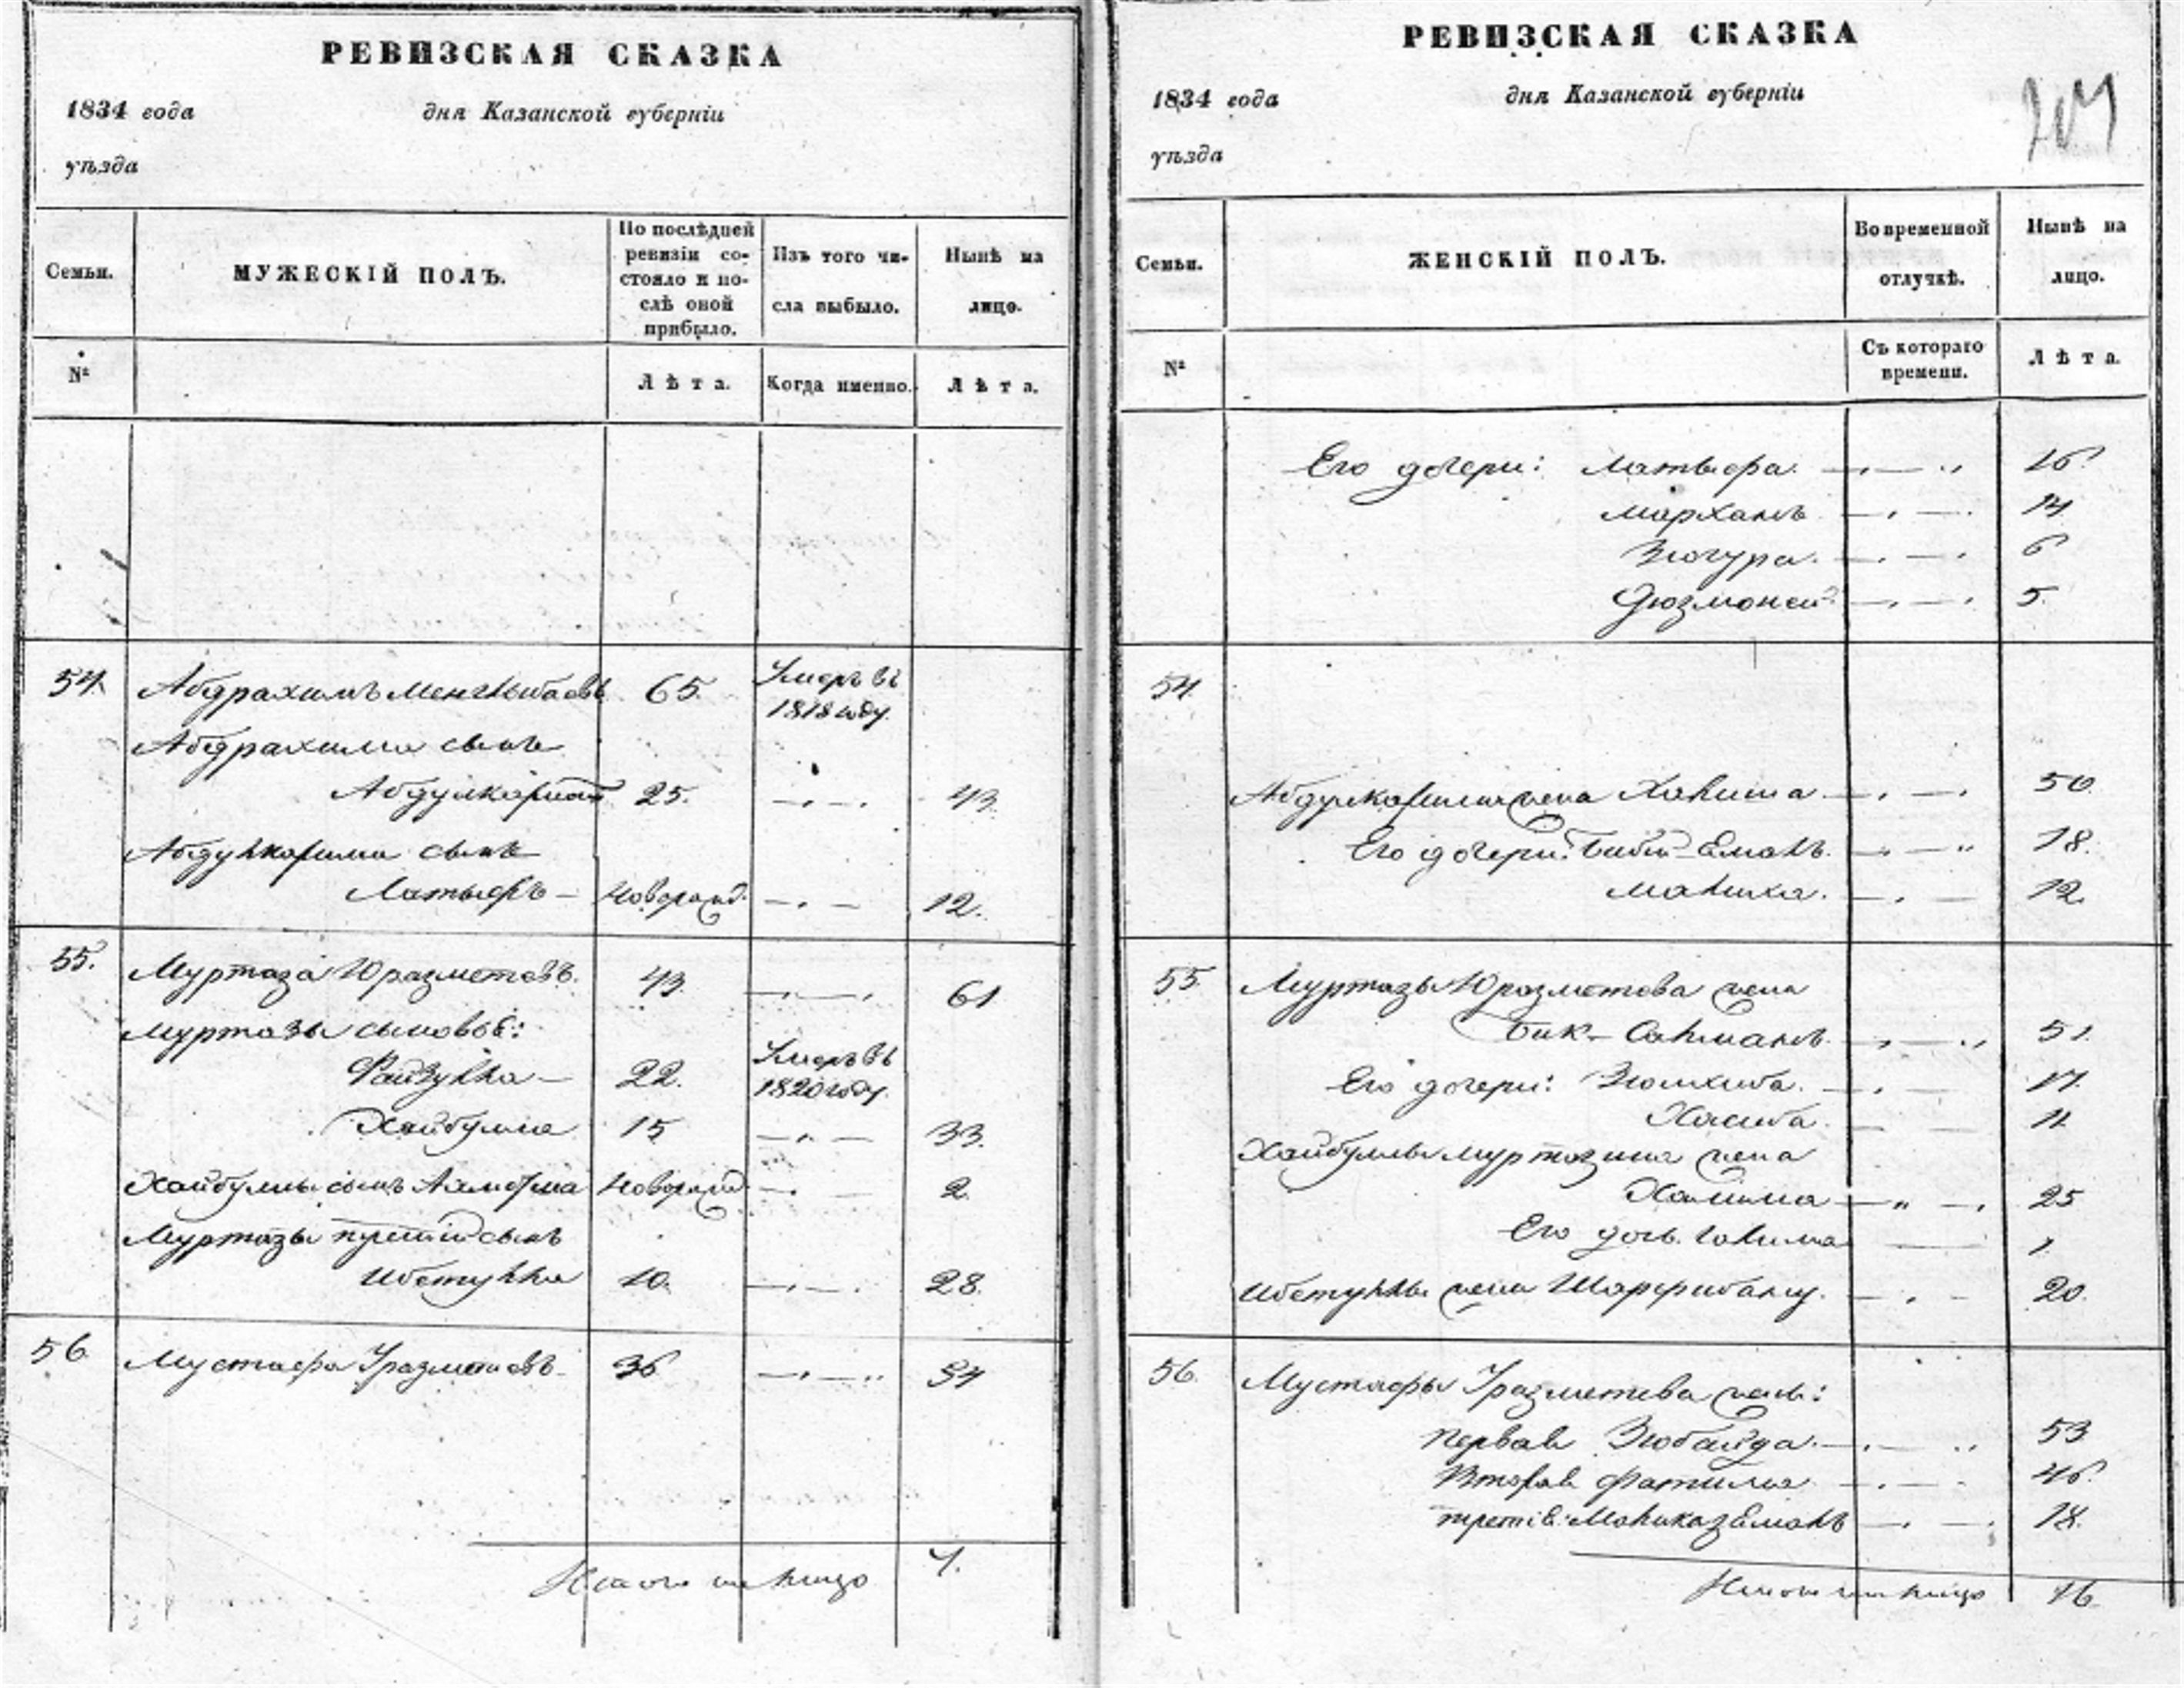 РЕВИЗСКАЯ СКАЗКА
1834 года дня Казанской губерніи
уѣзда
Семьи. МУЖЕСКІЙ ПОЛЪ. По послѣдней ревизіи состояло и послѣ оной прибыло. Изъ того числа выбыло. Нынѣ на лицо.
№ Лѣта. Когда именно. Лѣта.
54. Абдрахимъ 65. Умеръ въ 1818 году.
Абдрахима сынъ
Абдулкаримъ 25. 43.
Абдулкарима сынъ
Латыфъ — новорожд. 12.
55. Муртаза Юразметовъ. 43. 61
Муртазы сыновья:
Файзулла — 22. Умеръ въ 1820 году.
Хайбулла 15 33.
Хайбуллы сынъ новорожд. 2.
Муртазы третій сынъ
10. 28.
56. Мустафа Уразметовъ 36 54
Итого на лицо 7.
РЕВИЗСКАЯ СКАЗКА
1834 года дня Казанской губерніи
уѣзда
Семьи. ЖЕНСКІЙ ПОЛЪ. Во временной отлучкѣ. Нынѣ на лицо.
№ Съ котораго времени. Лѣта.
Его дочери: Латыфа. 16.
Марханъ 14
Зюгура. 6
5.
54.
Абдулкарима жена Халиша 50.
Его дочери: Биби-Ямалъ. 18.
Малика. 12.
55. Муртазы Юразметова жена
Бик- 51.
Его дочери: 17.
Хасиба. 11.
Хайбуллы Муртазина жена
Халима 25
Его дочь Галима 1.
жена Шарфибану. 20.
56. Мустафы Уразметева жены:
первая Зюбайда. 53
Вторая Фатима 46.
третія: Маликазямалъ 18.
Итого на лицо 16.